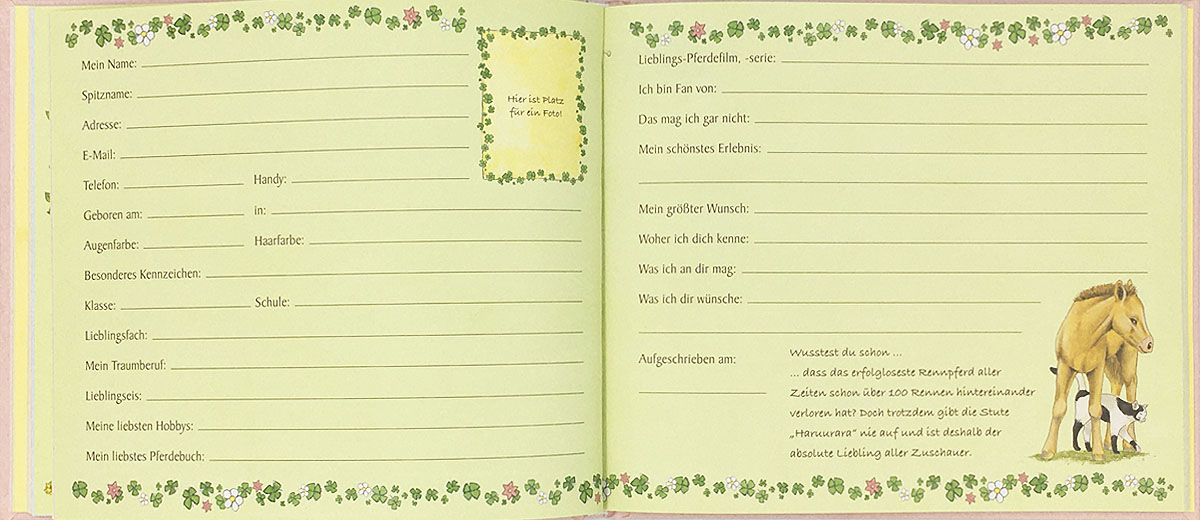 Mein Name:
Spitzname:
Adresse:
E-Mail:
Telefon: Handy:
Geboren am: in:
Augenfarbe: Haarfarbe:
Besonderes Kennzeichen:
Klasse: Schule:
Lieblingsfach:
Mein Traumberuf:
Lieblingseis:
Meine liebsten Hobbys:
Mein liebstes Pferdebuch:
Hier ist Platz
für ein Foto!
Lieblings-Pferdefilm, -serie:
Ich bin Fan von:
Das mag ich gar nicht:
Mein schönstes Erlebnis:
Mein größter Wunsch:
Woher ich dich kenne:
Was ich an dir mag:
Was ich dir wünsche:
Aufgeschrieben am:
Wusstest du schon ...
... dass das erfolgloseste Rennpferd aller
Zeiten schon über 100 Rennen hintereinander
verloren hat? Doch trotzdem gibt die Stute
„Haruurara“ nie auf und ist deshalb der
absolute Liebling aller Zuschauer.